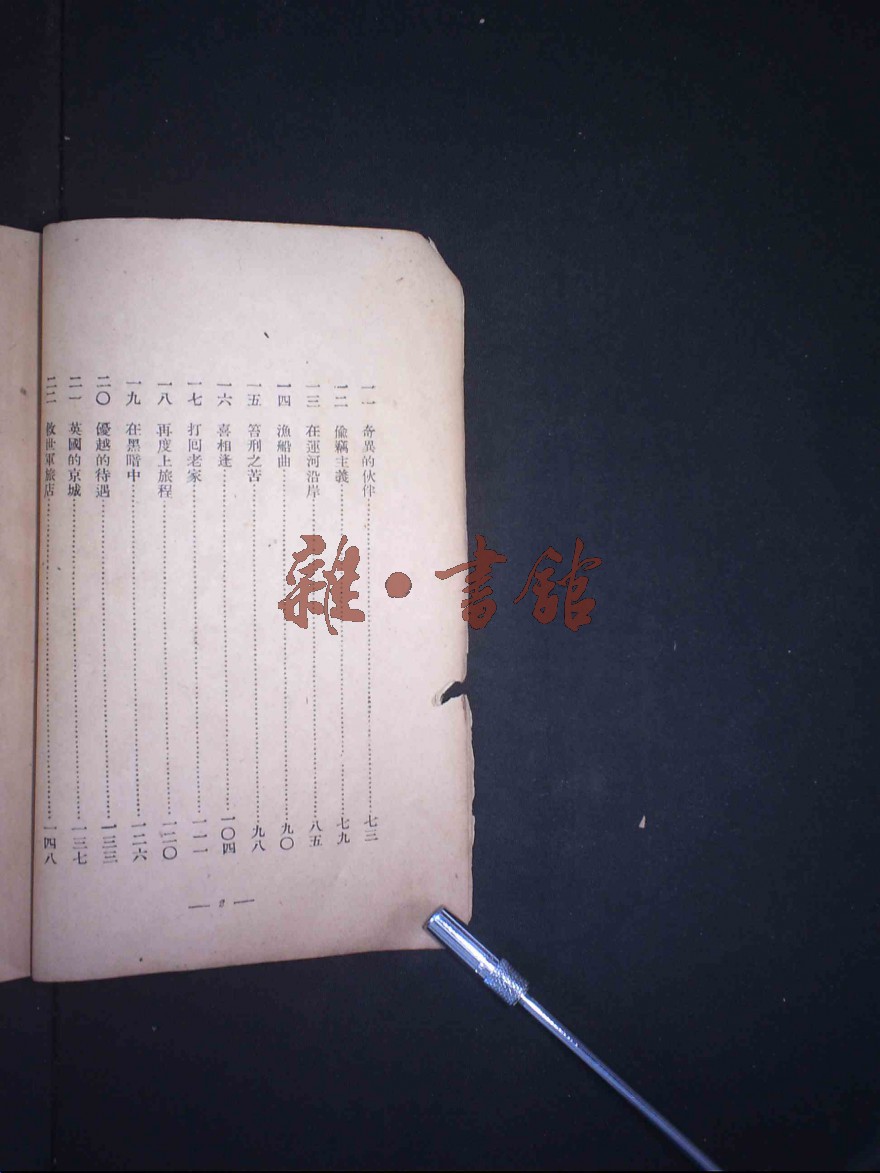 一一 奇異的伙伴……七三
一二 偷竊主義……七九
一三 在運河沿岸……八五
一四 漁船曲……九〇
一五 笞刑之苦……九八
一六 喜相逢……一〇四
一七 打回老家……一一一
一八 再度上旅程……一二〇
一九 在黑暗中……一二六
二〇 優越的待遇……一三三
二一 英國的京城……一三七
二二 救世軍旅店……一四八
雜·書館